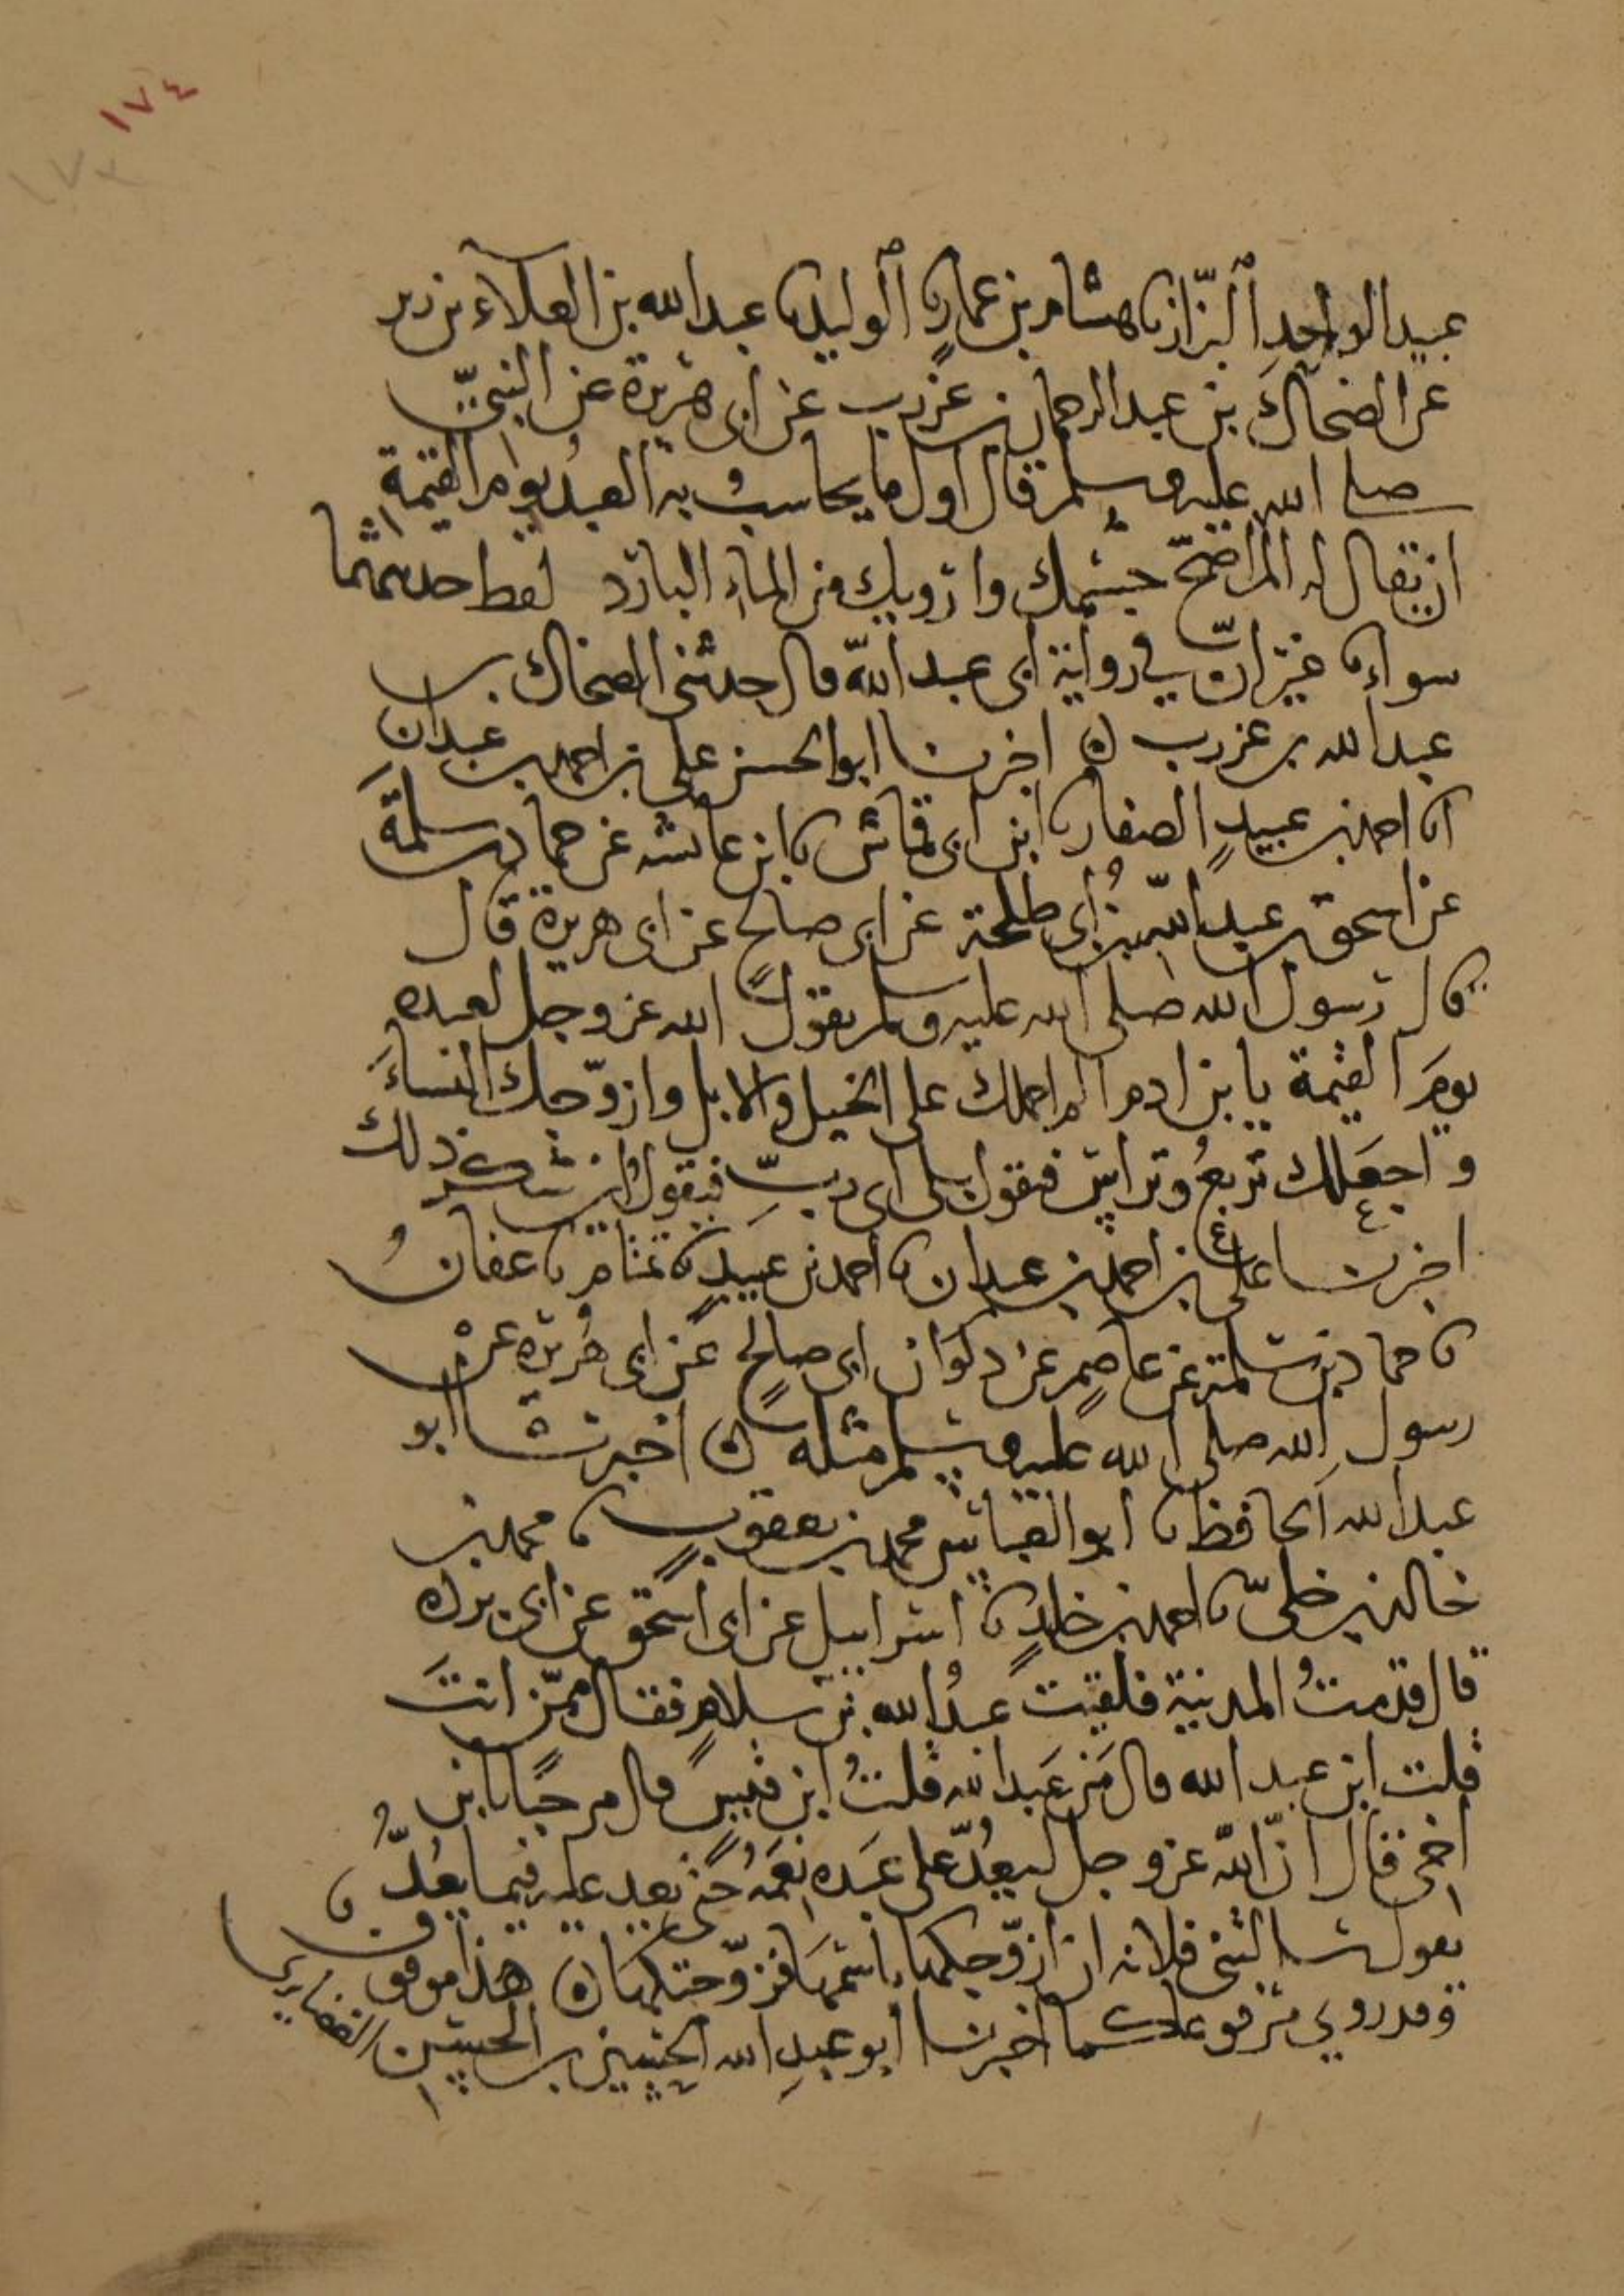 ١٧٤
١٧٣
عبيد الواحد البزاز نا هشام بن عمار نا الوليد نا عبد الله بن العلاء بن زبر
عن الضحاك بن عبد الرحمان بن عرزب عن ابى هريرة عن النبي
صلى الله عليه وسلم قال اول ما يحاسب به العبد يوم القيمة
ان يقال له الم اصح جسمك وارويك من الماء البارد لفظ حديثهما
سواء غير ان في رواية ابى عبد الله قال حدثنى الضحاك بن
عبد الله بن عرزب ه اخبرنا ابو الحسن على بن احمد بن عبدان
انا احمد بن عبيد الصفار نا ابن ابى قماش نا ابن عائشه عن حماد بن سلمة
عن اسحق بن عبد الله بن ابى طلحة عن ابى صالح عن ابى هريرة قال
قال رسول الله صلى الله عليه وسلم يقول الله عز وجل لعبده
يوم القيمة يا بن ادم الم احملك على الخيل والابل وازوجك النساء
واجعلك تربع وتراس فيقول بلى اى رب فيقول اين شكر ذلك
اخبرنا على بن احمد بن عبدان نا احمد بن عبيد نا تمتام نا عفان
نا حماد بن سلمة عن عاصم عن ذكوان ابى صالح عن ابى هريره عن
رسول الله صلى الله عليه وسلم مثله ه اخبرنا ابو
عبد الله الحافظ نا ابو العباس محمد بن يعقوب نا محمد بن
خالد بن خلى نا احمد بن خلد نا اسرائيل عن ابى اسحق عن ابى برده
قال قدمت المدينة فلقيت عبد الله بن سلام فقال ممن انت
قلت ابن عبد الله قال من عبد الله قلت ابن قيس قال مرحبا بابن
اخى قال ان الله عز وجل ليعد على عبده نعمه حتى يعد عليه فيما يعد
يقول سالتنى فلانه ان ازوجكها باسمها فزوجتكها ه هذا موقوف
وقد روي مرفوعا كما اخبرنا ابو عبد الله الحسين بن الحسين الغضايرى